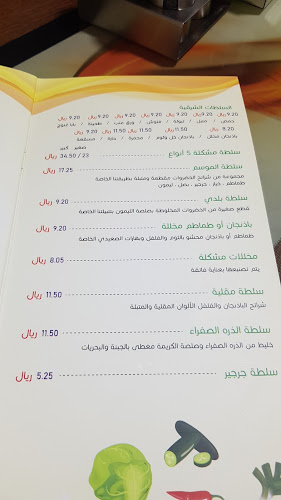 السلطات الشرقية
9.20 ريال 9.20 ريال 9.20 ريال 9.20 ريال 9.20 ريال 9.20 ريال 9.20 ريال
حمص / متبل / تبولة / فتوش / ورق عنب / طحينة / بابا غنوج
8.20 ريال 11.50 ريال 11.50 ريال 9.20 ريال 9.20 ريال
باذنجان مخلل / باذنجان خل وثوم / محمرة / مسقعة
صغير كبير
سلطة مشكلة 5 أنواع 23 / 34.50 ريال
سلطة الموسم 17.25 ريال
مجموعة من شرائح الخضروات مقطعة ومتبلة بطريقتنا الخاصة
طماطم - خيار - جرجير - بصل - ليمون
سلطة بلدي 9.20 ريال
قطع صغيرة من الخضروات المخلوطة بصلصة الليمون بتتبيلتنا الخاصة
باذنجان أو طماطم مخللة 9.20 ريال
طماطم أو باذنجان محشو بالثوم والفلفل وبهارات الصعيدي الخاصة
مخللات مشكلة 8.05 ريال
يتم تصنيعها بعناية فائقة
سلطة مقلية 11.50 ريال
شرائح الباذنجان والفلفل الألوان المقلية والمتبلة
سلطة الذره الصفراء 11.50 ريال
خليط من الذره الصفراء وصلصة الكريمة مغطى بالجبنة والبحريات
سلطة جرجير 5.25 ريال